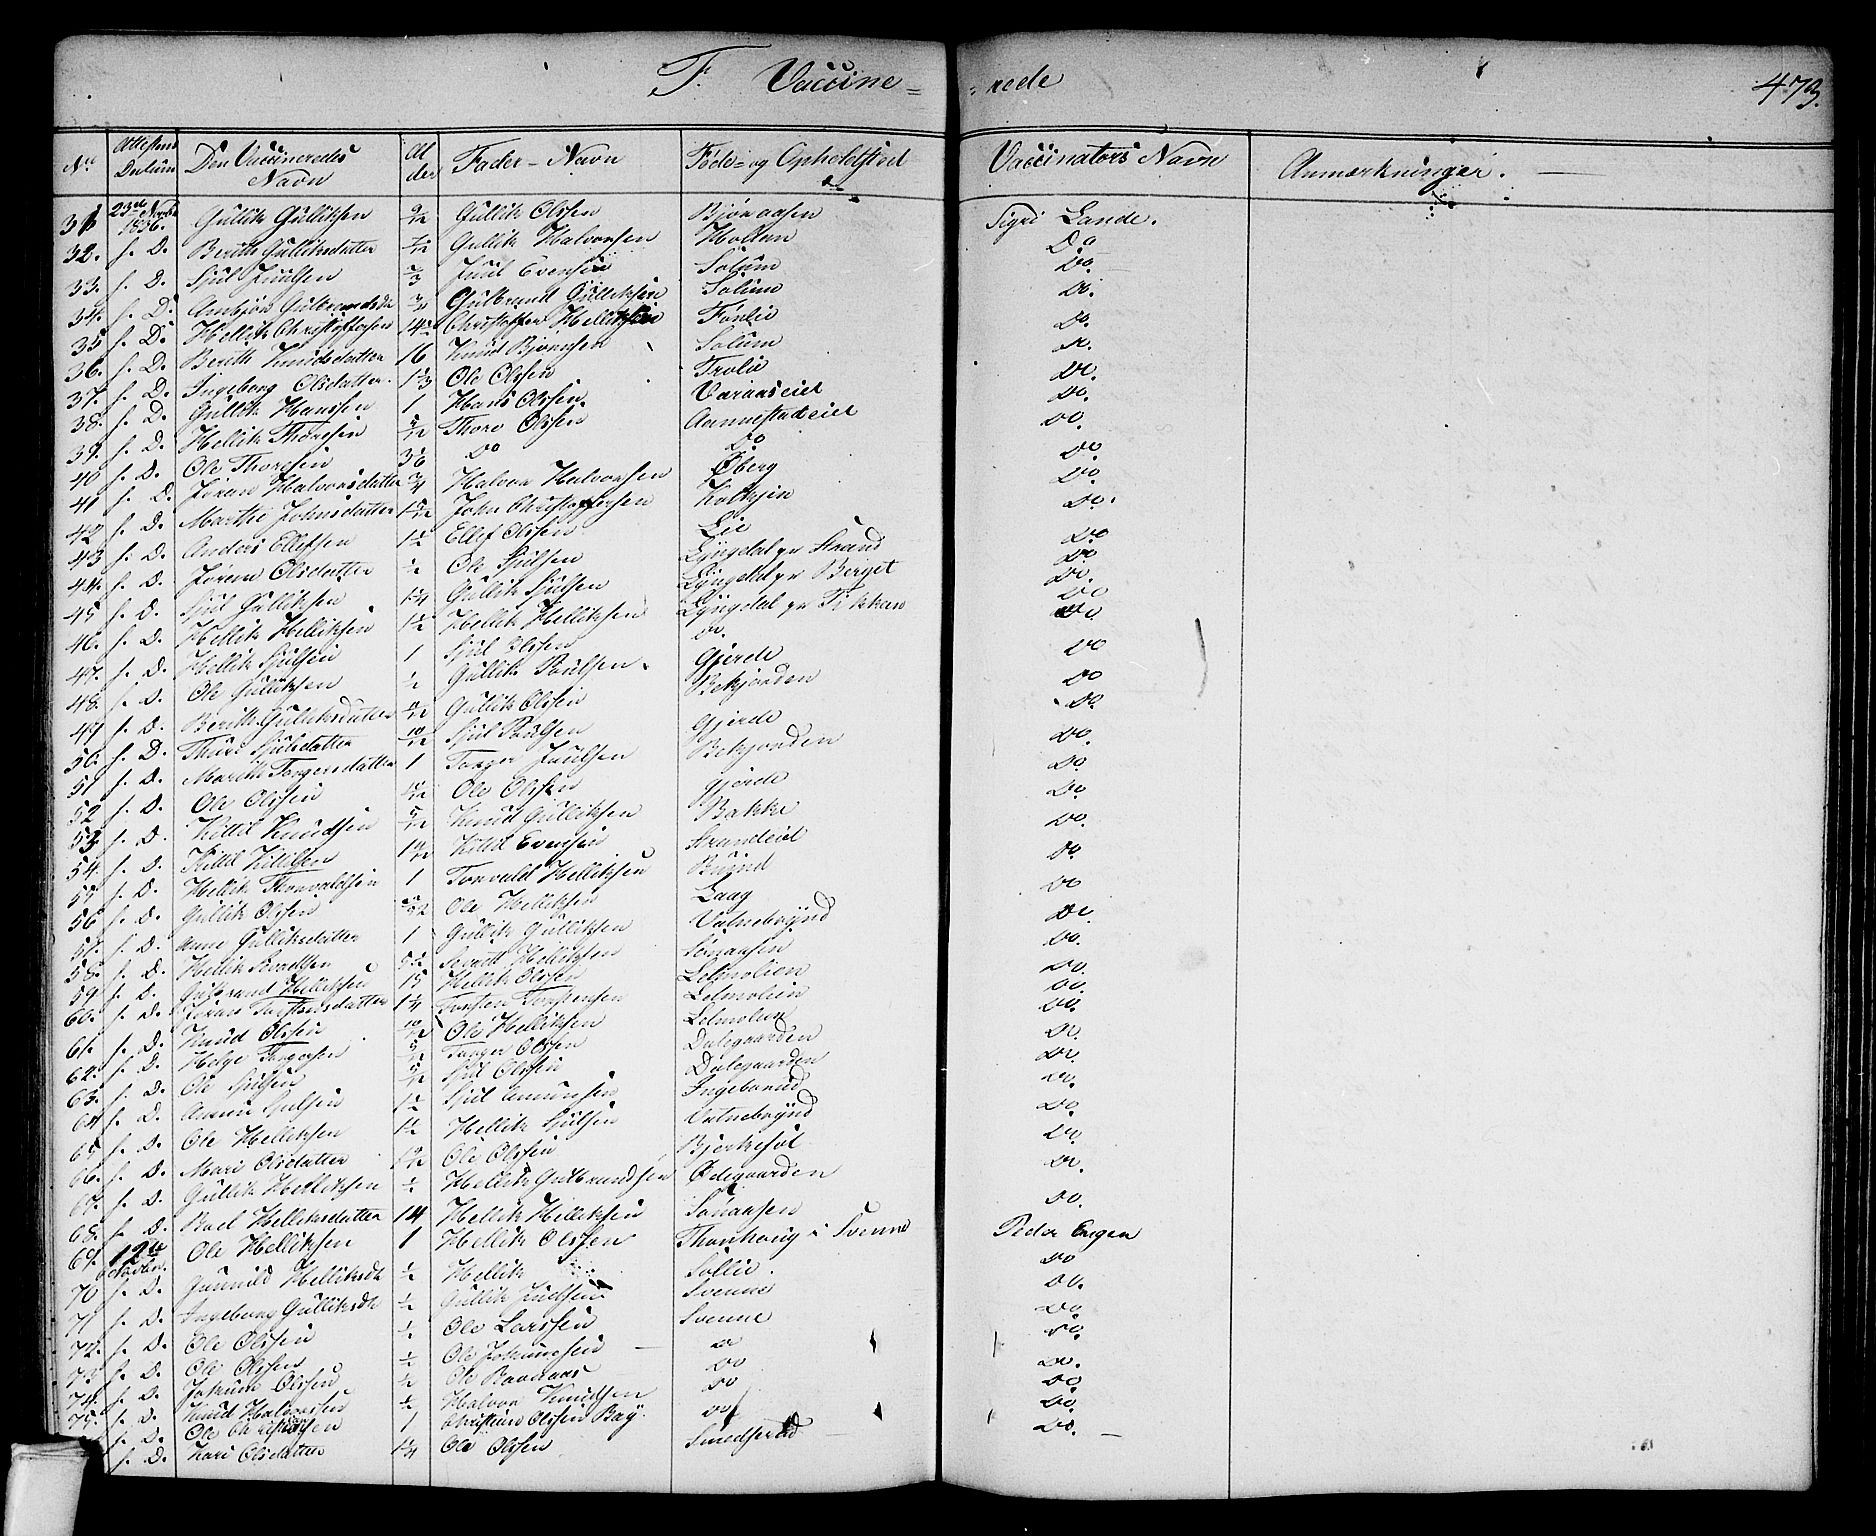 F. Vaccine= =rede 473.
No. Attestens Datum Den Vaccineredes Navn Alder Fader-Navn Føde- og Opholdsted Vaccinators Navn Anmærkninger.
31 23de Novbr 1836. Gullik Gulliksen 9/12 Gullik Olssen Bjøraasen Sigri Lande.
32. s. D. Berith Gulliksdatter Gullik Halvorsen Holtan Do
33. s. D. Sjul Juulsen 2/3 Juul Evensen Solum Do.
34. s. D. Anbjør Gulbrandsdt 3/4 Gulbrand Gulliksen Solum Do.
35 s. D. Hellik Christoffersen Christoffer Helliksen Fønlie Do.
36. s. D. Berith Knudsdatter 16 Knud Bjørnsen Solum Do.
37. s. D. Ingeborg Olsdatter 1 1/3 Ole Olssen Trolie Do.
38. s. D. Gullik Hanssen 1 Hans Olssen Varaaseiet Do.
39. s. D. Hellik Thoresen Thore Olssen Aannestadeiet Do.
40 s. D. Ole Thoresen Do Do Do.
41 s. D. Jøran Halvorsdatter 3/4 Halvor Halvorsen Øberg Do.
42 s. D. Marthe Johnsdatter John Christoffersen Kolksjin Do.
43 s. D. Anders Ellefsen 1 1/2 Ellef Olssen Lie Do
44. s. D. Jøran Olsdatter 1/2 Ole Sjulsen Lyngdal pr Strand Do
45 s. D. Sjul Gulliksen 1 1/4 Gullik Sjulsen Lyngdal pr Berget Do.
46. s. D. Hellik Helliksen 1 1/2 Hellik Helliksen Lyngdal pr Tikkan Do
47. s. D. Hellik Sjulsen 1 Sjul Olssen Do. Do
48. s. D. Ole Gulliksen 1/2 Gullik Paulsen Gjerde Do
49 s. D. Berith Gulliksdatter Gullik Olssen Bekjorden Do
50. s. D. Thure Sjulsdatter 10/12 Sjul Paulsen Gjerde Do.
51 s. D. Marthe Torgersdatter 1 Torger Juulsen Bekjorden Do.
52 s. D. Ole Olssen Ole Olssen Gjerde Do.
53 s. D. Kittil Knudsen 5/12 Knud Gulliksen Bakke Do.
54. s. D. Kittil Kittilsen Kittil Evensen Strandeiet Do.
55 s. D. Hellik Thorvaldsen 1 Torvald Helliksen Buind Do
56 s. D. Gullik Olssen Ole Helliksen Laag Do.
57. s. D. Anne Gulliksdatter 1 Gullik Gulliksen Vatnebrynd Do.
58. s. D. Hellik 5 1/2 Helliksen Sønaasen Do.
59. s. D. Gulbrand Helliksen 15 Hellik Olssen Lelmolien Do.
60. s. D. Jøran Torstensdatter 1 1/4 Torsten Torstensen Lelmolien Do.
61. s. D. Knud Olssen 10/12 Ole Helliksen Lelmolien Do.
62. s. D. Helge Torgersen Torger Olssen Dalegaarden Do.
63. s. D. Ole Sjulsen 5/12 Sjul Olssen Dalegaarden Do.
64 s. D. Sjulsen 1 1/2 Sjul Amunsen Ingeborrud Do
65 s. D. Ole Helliksen 1 1/2 Hellik Sjulsen Vatnebrynd Do.
66. s. D. Mari Olsdatter Ole Olssen Bjerkesøl Do.
67. s. D. Gullik Helliksen 1/2 Hellik Gulbrandsen Ødegaarden Do.
68. s. D. Roel Helliksdatter 14 Hellik Helliksen Sønaasen Do.
69. 19de Octobr. Ole Helliksen 1 Hellik Olssen Thonhoug i Svenne Peder Engen
70 s. D. Gunild Helliksdt 1/2 Hellik Sollie. Do
71 s. D. Ingeborg Gulliksdt 1/2 Gullik Juelsen Svenne Do.
72. s. D. Ole Olssen 1/2 Ole Larssen Svenne Do
73 s. D. Ole Olssen 1/2 Ole Johannesen Do Do
74. s. D. Johans Olssen 1/2 Ole Do Do.
75. s. D. Knud Halvorssen 1/2 Halvor Knudssen Do Do
s. D. Ole Christiansen 1 Christian Olssen Bay. Do Do.
s. D. Kari Olsdatter 1 1/4 Ole Olssen Smedsrud Do.